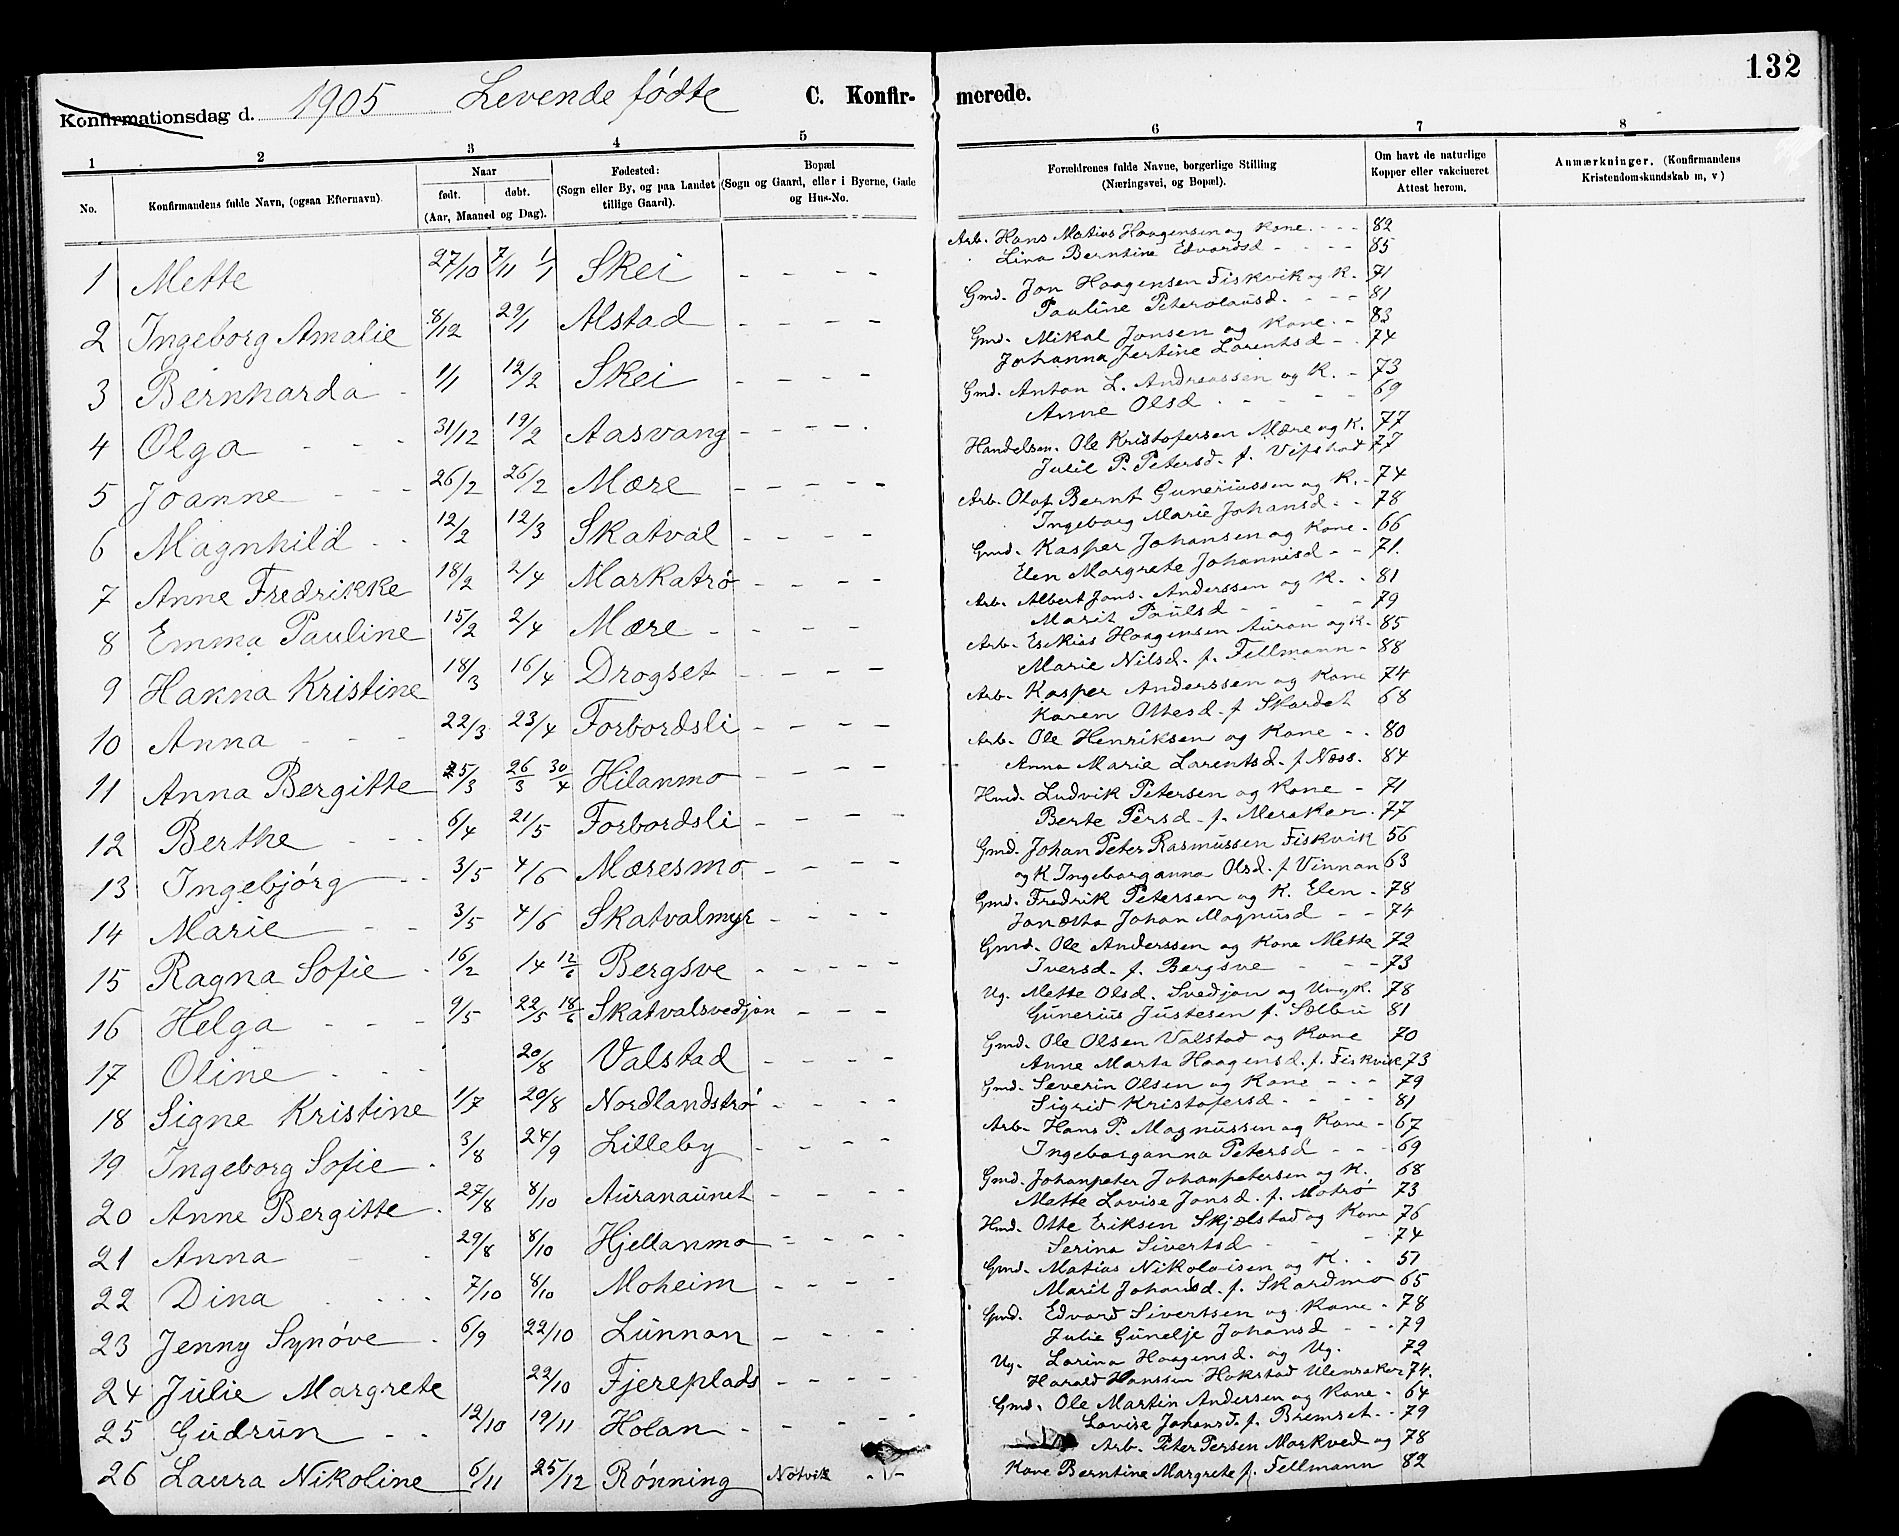 132
Konfirmationsdag d. 1905 Levende fødte C. Konfir- merede.
1 2 3 4 5 6 7 8
No. Konfirmandens fulde Navn, (ogsaa Efternavn). Naar født. døbt. (Aar, Maaned og Dag). Fødested: (Sogn eller By, og paa Landet tillige Gaard). Bopæl (Sogn og Gaard, eller i Byerne, Gade og Hus-No.
Forældrenes fulde Navne, borgerlige Stilling (Næringsvei, og Bopæl). Om havt de naturlige Kopper eller vakcineret Attest herom. Anmærkninger. (Konfirmandens Kristendomskundskab m, v)
1 Mette 27/10 7/11 1/1 Skei - - - -
2 Ingeborg Amalie 8/12 29/1 Alstad - - - -
3 Bernharda - 1/1 12/2 Skei - - - -
4 Olga - - - 31/12 19/2 Aasvang - - - -
5 Joanne - - - 26/2 26/2 Mære - - - - -
6 Magnhild - - 12/2 12/3 Skatval - - - -
7 Anne Fredrikke 18/2 2/4 Markatrø - - - -
8 Emma Pauline 15/2 2/4 Mære - - - -
9 Hanna Kristine 18/3 16/4 Drogset - - - -
10 Anna - - - 22/3 23/4 Forbordsli - - - -
11 Anna Bergitte 25/3 26/3 30/4 Hilanmo - - - -
12 Berthe - - 6/4 21/5 Forbordsli - - - -
13 Ingebjørg - - 3/5 4/6 Mæresmo - - -
14 Marie - - 3/5 4/6 Skatvalmyr - - - -
15 Ragna Sofie - 16/2 14 12/6 Bergsve - - - - -
16 Helga - - - 9/5 22/5 18/6 Skatvalsvedjan - - -
17 Oline - - - 20/8 Valstad - - - -
18 Signe Kristine 1/7 20/8 Nordlandstrø - - - -
19 Ingeborg Sofie - 3/8 24/9 Lilleby - - - -
20 Anne Bergitte - 27/8 8/10 Auranaunet - - - -
21 Anna - - 29/8 8/10 Hjellanmo - - - -
22 Dina - - - 7/10 8/10 Moheim - - - -
23 Jenny Synøve - 6/9 22/10 Lunnan - - - -
24 Julie Margrete 22/10 Fjereplads - - - -
25 Gudrun - - 12/10 19/11 Holan - - - -
26 Laura Nikoline 6/11 25/12 Rønning Notvik - -
Arb. Hans Matias Haagensen og Kone - - - 82
Lina Berntine Edvardsd - - - - 85
Gmd. Jon Haagensen Fiskvik og K. 71
Pauline Peterolausd. - - - 81
Gmd. Mikal Jonsen og Kone. - 83
Johanna Jertine Lorentsd - - 74
Gmd. Anton L. Andreassen og K. - 73
Anne Olsd - - - - 69
Handelsm. Ole Kristofersen Mære og K. 77
Julie P. Petersd. f. Vifstad 77
Arb. Olof Bernt Guneriussen og K. - 74
Ingeborg Marie Johansd. - - 78
Gmd. Kasper Johansen og Kone - 66
Elen Margrete Johannisd - - 71.
Arb. Albert Jons. Anderssen og K. - 81
Marit Paulsd - - - - 79
Arb. Esekias Haagensen Auran og K. 85
Marie Nilsd. f. Fellmann - 88
Arb. Kasper Anderssen og Kone 74
Karen Ottesd. f Skardet 68
Arb. Ole Henriksen og Kone - - 80
Anna Marie Lorentsd. f. Næss. 84
Hmd. Ludvik Petersen og Kone - 71
Berte Persd. f. Meraker. 77
Gmd. Johan Peter Rasmussen Fiskvik 56
og K Ingeborganna Olsd. f Vinnan 63
Gmd. Fredrik Petersen og K. Elen - 78
Janetta Johan Magnusd - - 74
Gmd. Ole Anderssen og Kone Mette 72
Iversd. f. Bergsve - - - 73
Ug. Mette Olsd. Svedjan og Ungk. 78
Gunerius Justesen f. Selbu 81
Gmd. Ole Olsen Valstad og Kone 70
Anne Marta Haagensd. f. Fiskvik 73
Gmd. Severin Olsen og Kone - - - 79
Sigrid Kristofersd - - - - 81
Arb. Hans P. Magnussen og Kone - 67
Ingeborganna Petersd - - - 69
Gmd. Johanpeter Johanpetersen og K. 68
Mette Lovise Jonsd. f. Motrø 73
Hmd. Otte Eriksen Skjelstad og Kone 76
Serina Sivertsd - - - 74
Gmd. Matias Nikolaisen og K. - 57
Marit Johansd. f. Skardmo 65
Gmd. Edvard Sivertsen og Kone - 78
Julie Gunelje Johansd - - - 79
Ug. Lorina Haagensd. og Ug. 72
Harald Hanssen Hokstad 74.
Gmd. Ole Martin Andersen og Kone - 64
Lovise Johansd. f. Bremset - - 79
Arb. Peter Persen Markved og 78
Kone Berntine Margrete f. Fellmann 82